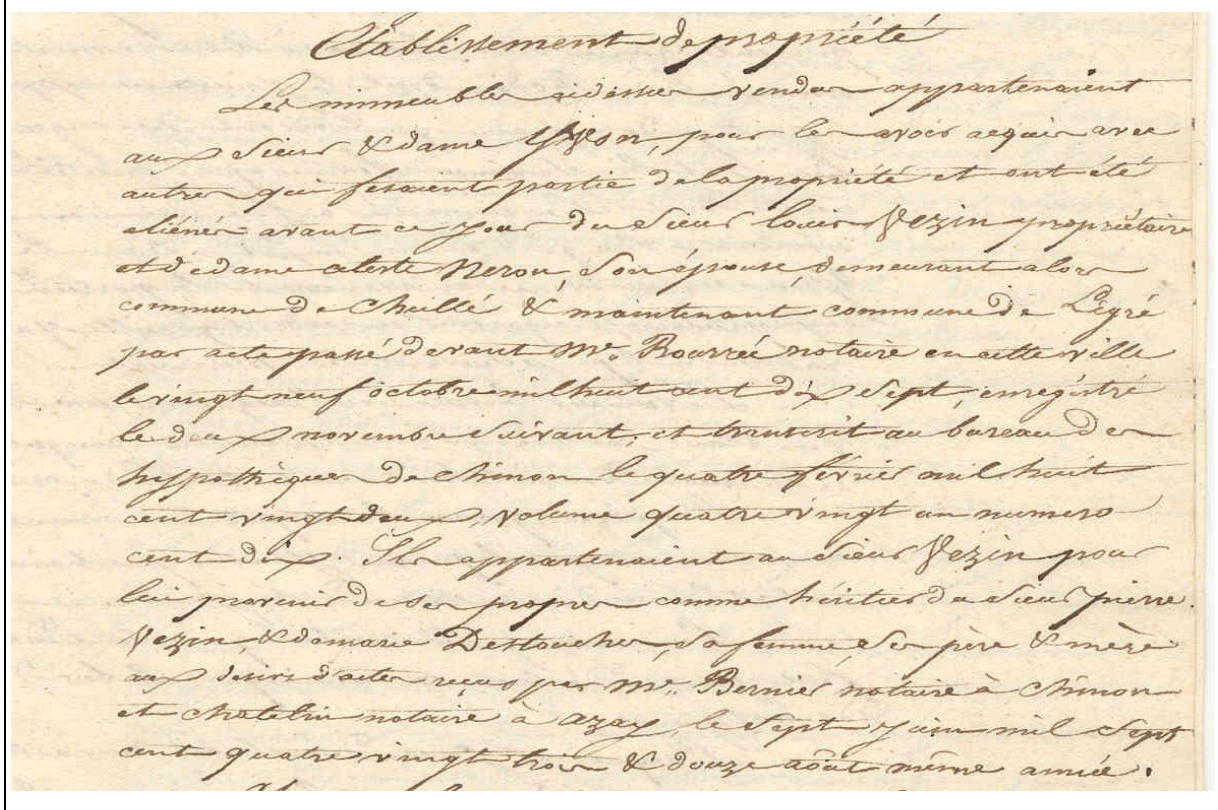 Etablissement de propriété
Les immeubles cidessus vendus appartenaient
aux sieur & dame Yvon, pour les avoir acquis avec
autres qui fesaient partie de la propriété et ont été
aliénés avant ce jour du sieur louis Vezin propriétaire
et de dame celeste Nerou son épouse demeurant alors
commune de Cheillé & maintenant commune de Ligré
par acte passé devant Me. Bourrée notaire en cette ville
le vingt neuf octobre mil huit cent dix sept, enregistré
le deux novembre suivant, et transcrit au bureau des
hyppothèques de chinon le quatre février mil huit
cent vingt deux, volume quatre vingt un numero
cent dix. Ils appartenaient au sieur Vezin pour
lui provenir de ses propres comme héritier du sieur pierre
Vezin, & de marie Destouches, sa femme, ses père & mère
aux desirs d'actes reçus par Me. Bernier notaire à chinon
et chatelin notaire à azay, le sept juin mil sept
cent quatre vingt trois & douze août même année.